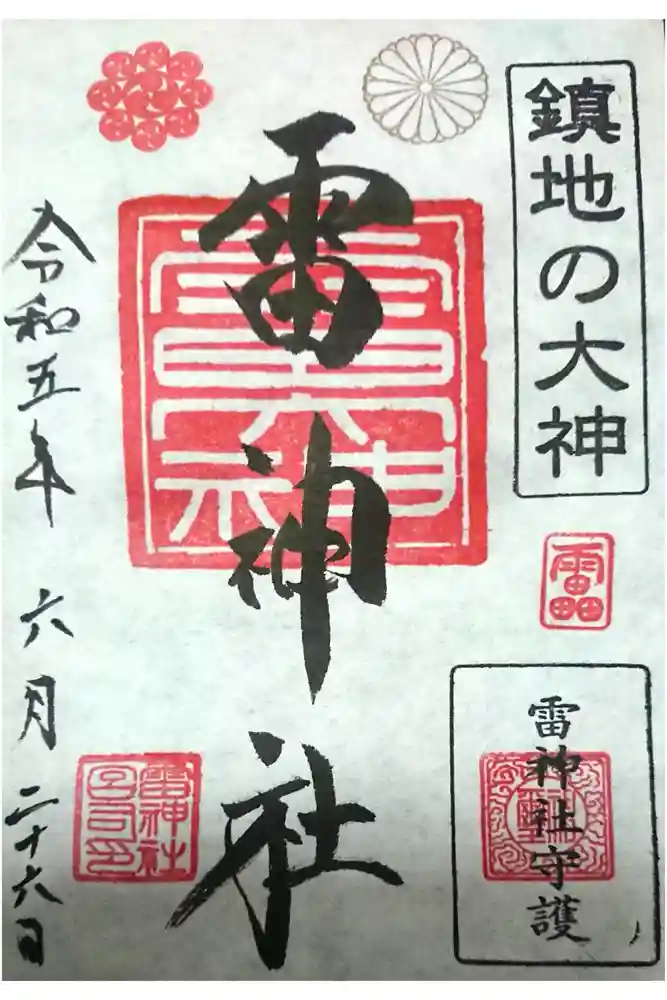 鎮地の大神
雷
雷神社守護
雷神社
雷神社
宮司印
令和五年 六月二十六日